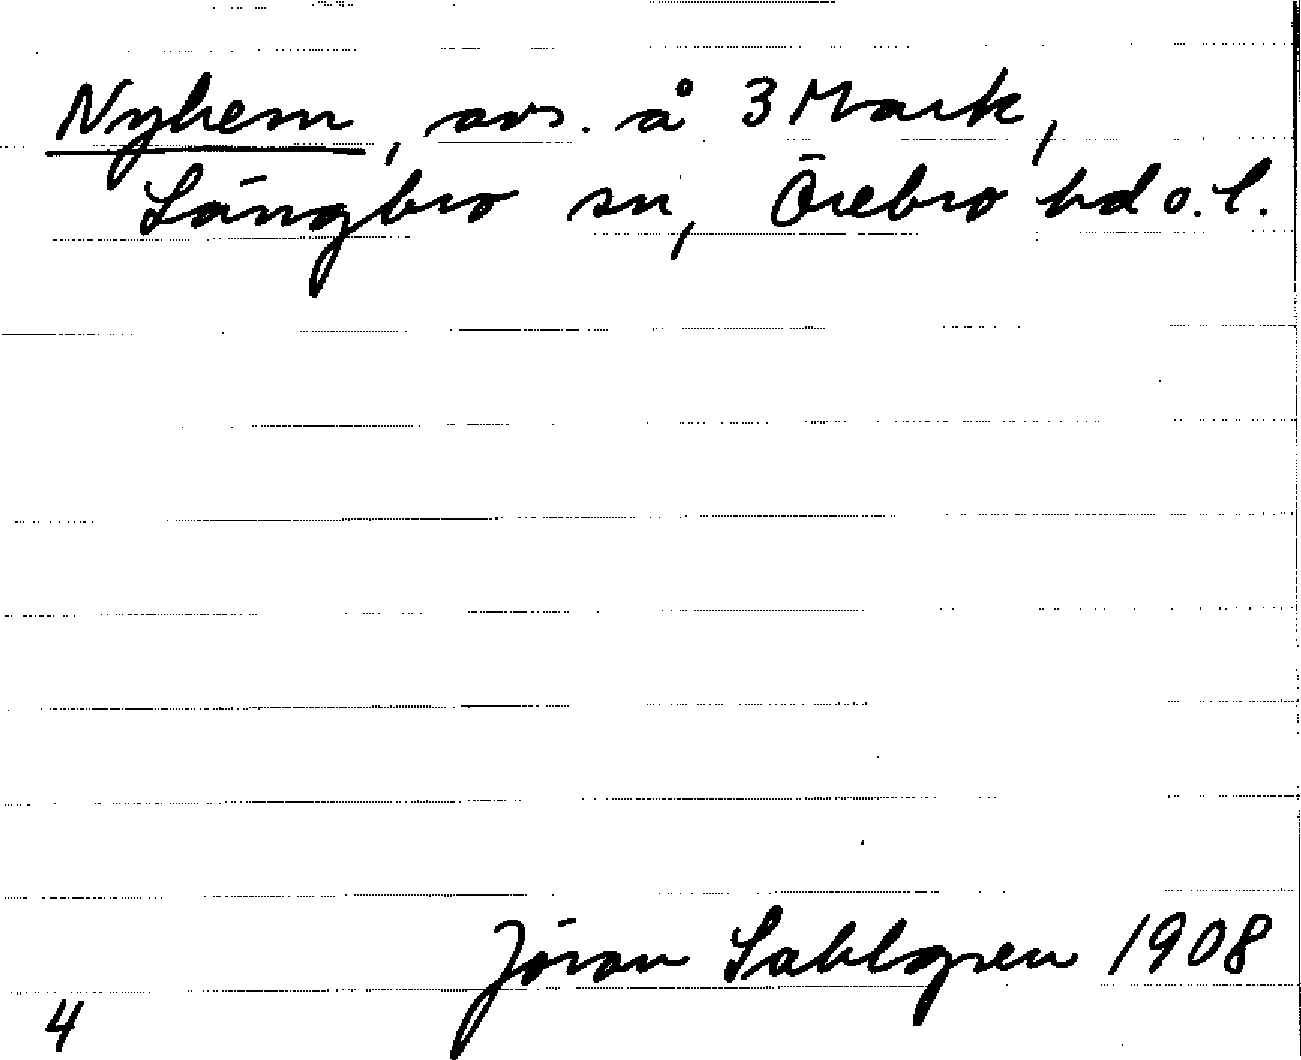 Nyhem, avs. å 3 Mark,
Längbro sn, Örebro hd o. l.
Jöran Sahlgren 1908
4